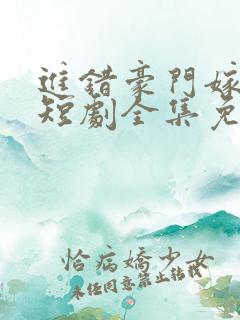 進錯豪門嫁
短劇全集免
恰病嬌少女
未经同意禁止转载